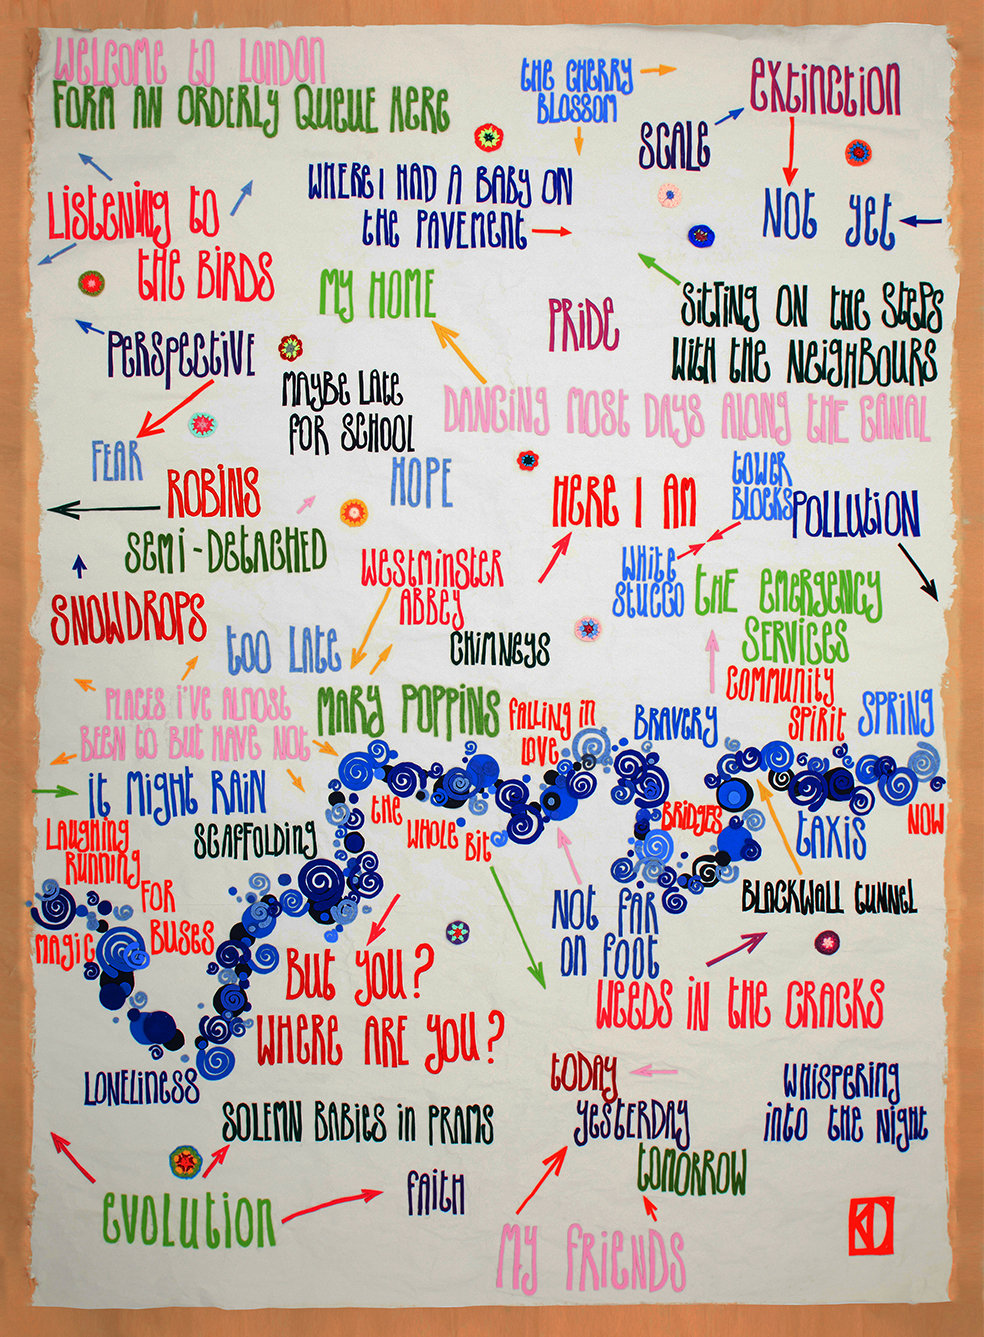 WELCOME to LONDON
FORM AN ORDERLY QUEUE HERE
the CHERRY
BLOSSOM
EXtinction
SCALE
Not yet
WHERE I HAD A BABY ON
the PAVEMENT
Listening to
the BiRDS
MY HOME
PRiDE
Sitting ON the StEPS
With the NEiGHBOURS
PERSPECtiVE
MAYBE LAtE
FOR SCHOOL
DANCiNG MOSt DAYS ALONG the CANAL
FEAR
HOPE
ROBiNS
SEMi-DEtACHED
HERE I AM
tOWER
BLOCKS
POLLUtiON
WEStMiNStER
ABBEY
WHitE
StUCCO
tHE EMERGENCY
SERViCES
SNOWDROPS
tOO LAtE
CHiMNEYS
COMMUNitY
SPiRit
SPRiNG
PLACES i'VE ALMOSt
BEEN tO BUt HAVE NOt
MARY POPPiNS
FALLiNG iN
LOVE
BRAVERY
it MiGHt RAiN
the
WHOLE Bit
BRiDGES
tAXiS
NOW
LAUGHiNG
RUNNiNG
FOR
BUSES
SCAFFOLDiNG
MAGiC
BLACKWALL tUNNEL
NOt FAR
ON FOOt
BUt YOU?
WHERE ARE YOU?
WEEDS iN the CRACKS
LONELiNESS
tODAY
YEStERDAY
tOMORROW
WHiSPERiNG
iNtO the NiGHt
SOLEMN BABiES iN PRAMS
EVOLUtiON
FAitH
MY FRiENDS
KD